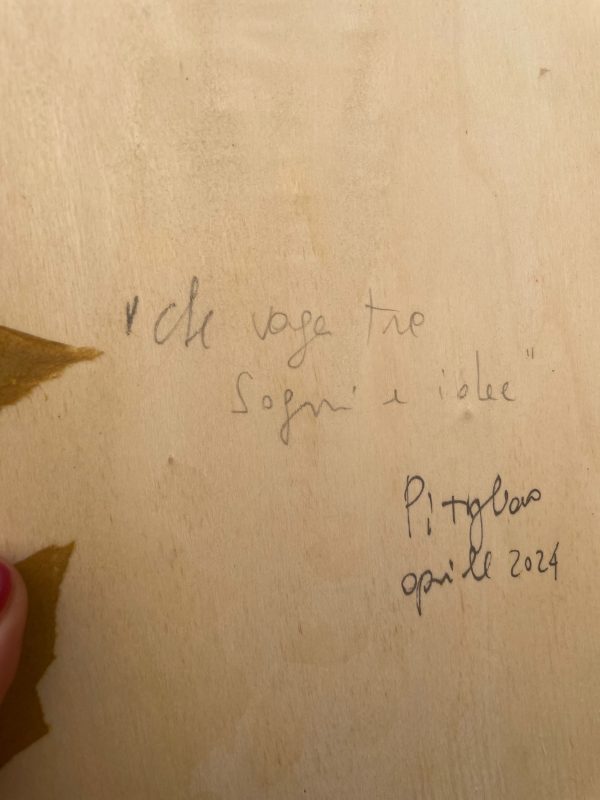 "che vaga tra
sogni e idee"
Pitigliano
aprile 2024